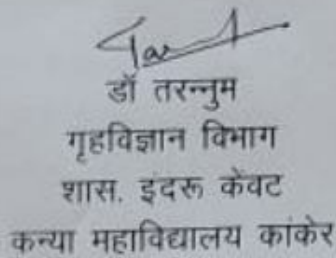 डॉ तरन्नुम
गृहविज्ञान विभाग
शास. इंदरू केंवट
कन्या महाविद्यालय कांकेर